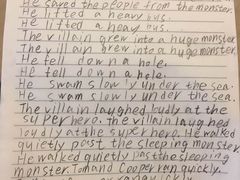 He saved the people from the monster.
He lifted a heavy bus.
He lifted a heavy bus.
The villain grew into a huge monster
The villain grew into a huge monster.
He fell down a hole.
He fell down a hole.
He swam slowly under the sea.
He swam slowly under the sea.
The villain laughed loudly at the
superhero. The villain laughed
loudly at the superhero. He walked
quietly past the sleeping monster.
He walked quietly past the sleeping
monster. Tom and Cooper ran quickly.
ran quickly.